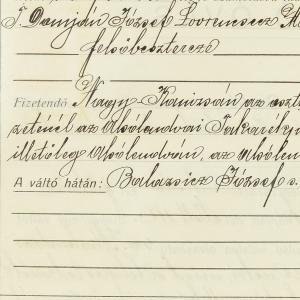 T. Damján József Lovrencsecz
felsőbesztercze
Fizetendő Nagy-Kanizsán az
zeténél az Alsólendvai Takarék
illetőleg Alsólendván, az Alsólen
A váltó hátán: Balazsicz József s.